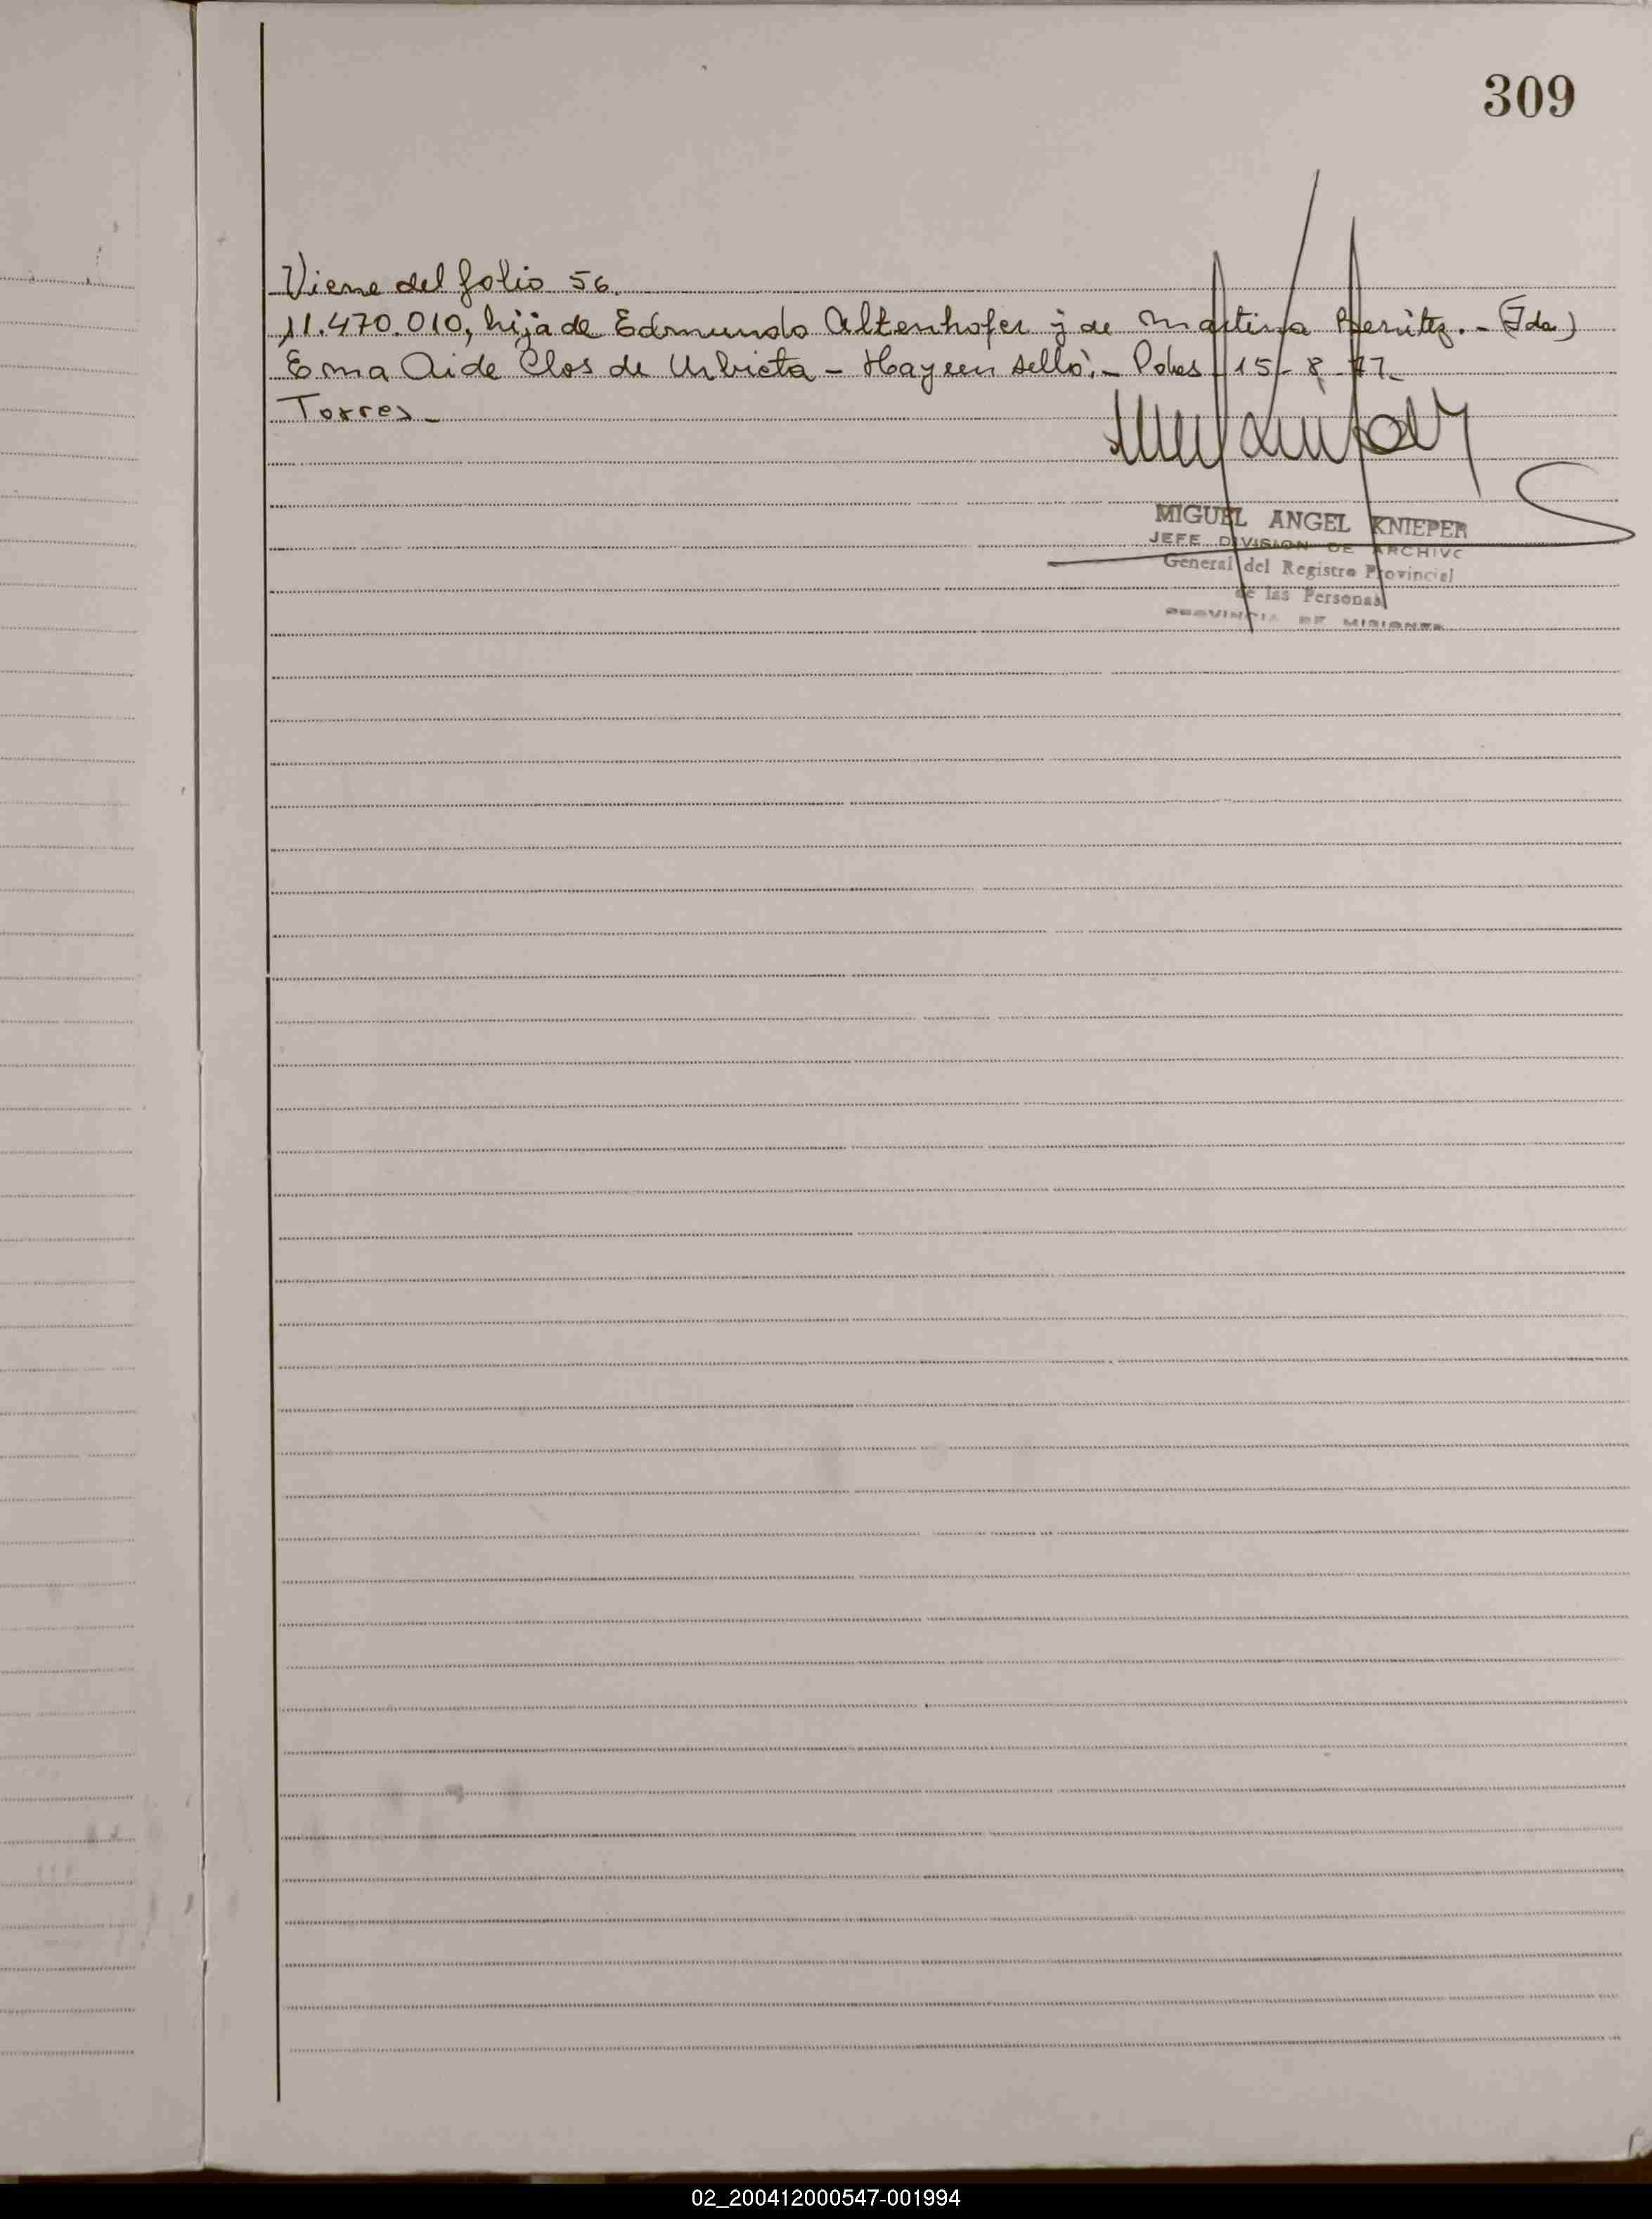 309
Viene del folio 56.
11.470.010, hija de Edmundo Altenhofer y de Martina Benítez.- (Fdo)
Ema Aide Clos de Urbieta - Hay un sello.- Pdas 15-8-77-
Torres-
MIGUEL ANGEL KNIEPER
JEFE DIVISION DE ARCHIVO
General del Registro Provincial
de las Personas
PROVINCIA DE MISIONES
02_200412000547-001994